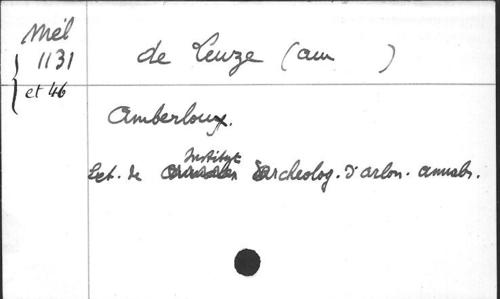 Mél
1131
et 46
de Leuze (am )
Amberloux.
Ext. de Institut Archeolog. d'arlon. annales.